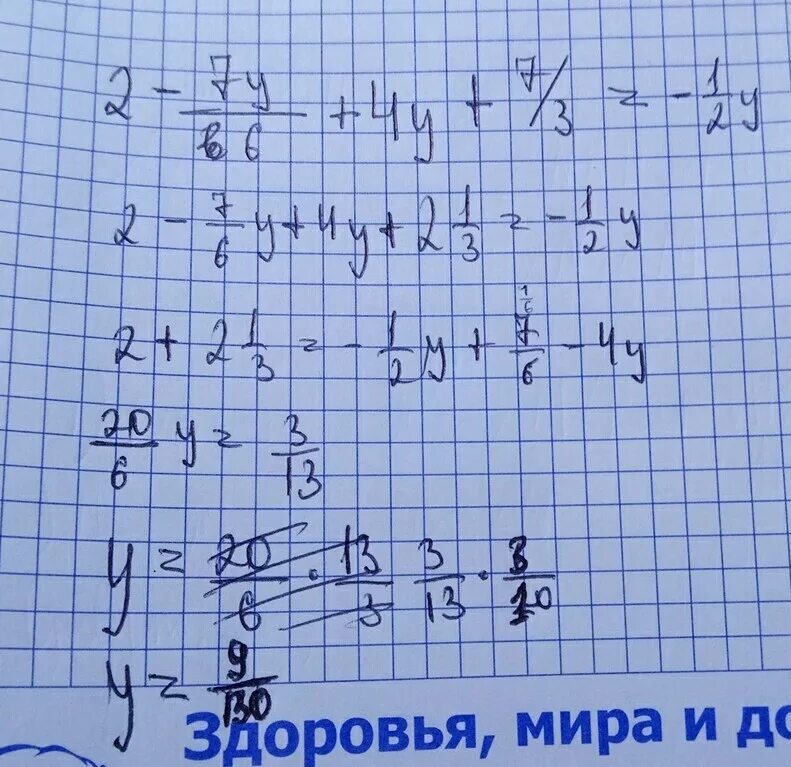 2 - 7y/6 + 4y + 7/3 = -1/2 y
2 - 7/6 y + 4y + 2 1/3 = -1/2 y
2 + 2 1/3 = -1/2 y + 7/6 - 4y
20/6 y = 3/13
y = 20/6 · 13/3 3/13 · 3/10
y = 9/130
Здоровья, мира и до